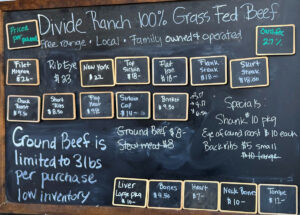 Priced per pound
Divide Ranch 100% Grass Fed Beef
Free range • Local • Family owned & operated
Filet Mignon $26-
Rib Eye $23
New York $22
Top Sirloin $18-
Flat Iron $18-
Flank Steak $18-
Skirt Steak $18.50
Chuck Roast
Short Ribs
Sirloin
Brisket $9.50
Specials:
Shank 10 pkg
Eye of round roast $10 each
Back ribs $5 small
$10 large
Ground Beef $8-
Stew meat $8
Ground Beef is
limited to 3lbs
per purchase
low inventory
Liver Large pkg $10-
Bones $4.50
Heart $7-
Neck Bones $10-
Tongue $12-